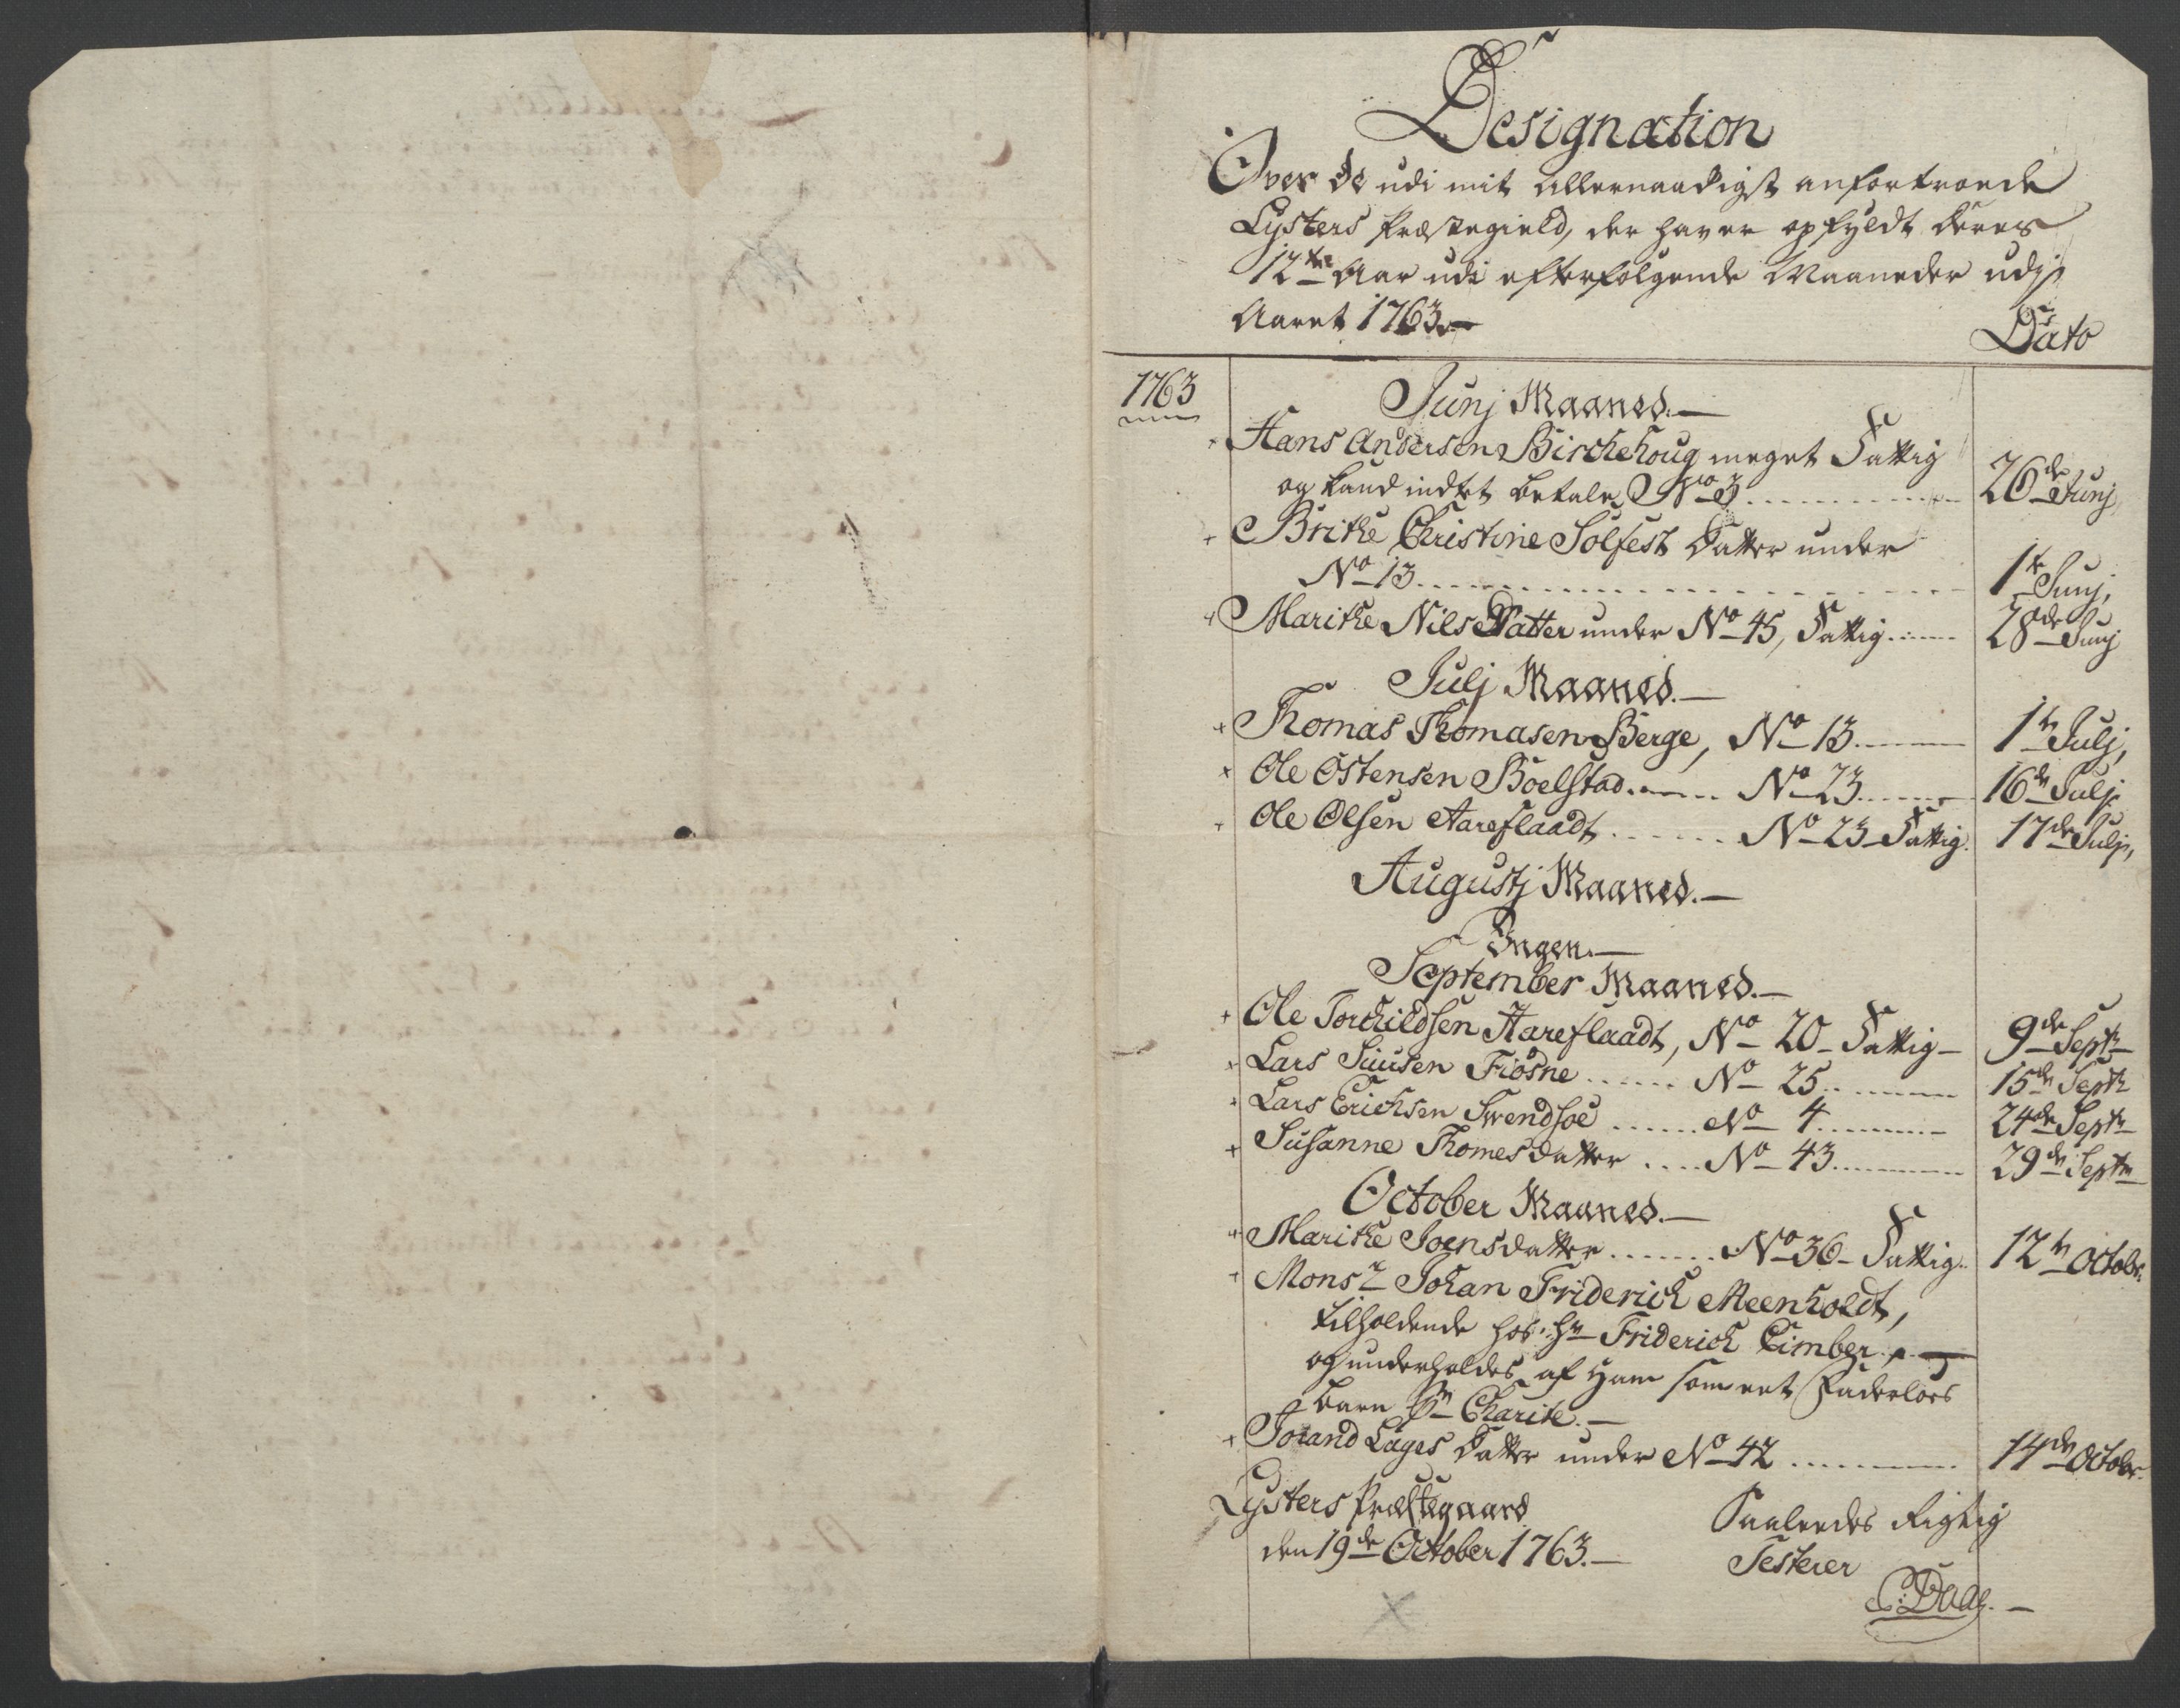 Designation
Over de udi mit allernaadigst anfortroede
Lysters Præstegield, der haver opfyldt deres
12te Aar udi efterfølgende Maaneder udj
Aaret 1763.
Dato
1763
Junj Maaned.
+ Hans Andersen Birchehoug meget Fattig
og kand indtet betale No 3 26de Junj
+ Brithe Christine Solfest Datter under
No 13 1te Junj,
+ Marithe Nils Datter under No 45, Fattig 28de Junj
Julj Maaned.
+ Thomas Thomasen Berge, No 13 1te Julj,
+ Ole Ostensen Boelstad No 23 16de Julj
+ Ole Olsen Aareflaadt No 23 Fattig. 17de Julj,
Augustj Maaned.
Ingen.
September Maaned.
+ Ole Torchildsen Aareflaadt, No 20 Fattig 9de Septr
+ Lars Siusen Fiosne No 25 15de Septr
+ Lars Erichsen Svendsøe No 4 24de Septr
+ Susanne Thomesdatter No 43 29de Septr
October Maaned.
+ Marithe Joensdatter No 36 Fattig. 12te Octobr.
+ Monsr Johan Friderich Meenholdt,
tilholdende hos Hr Friderich Cimber,
og underholdes af Ham som eet Faderloes
barn pr Charite.
+ Jorand Lages Datter under No 42 14de Octobr.
Lysters Præstegaard
den 19de October 1763.
Saaleedes Rigtig
Testerer
C: Daae.